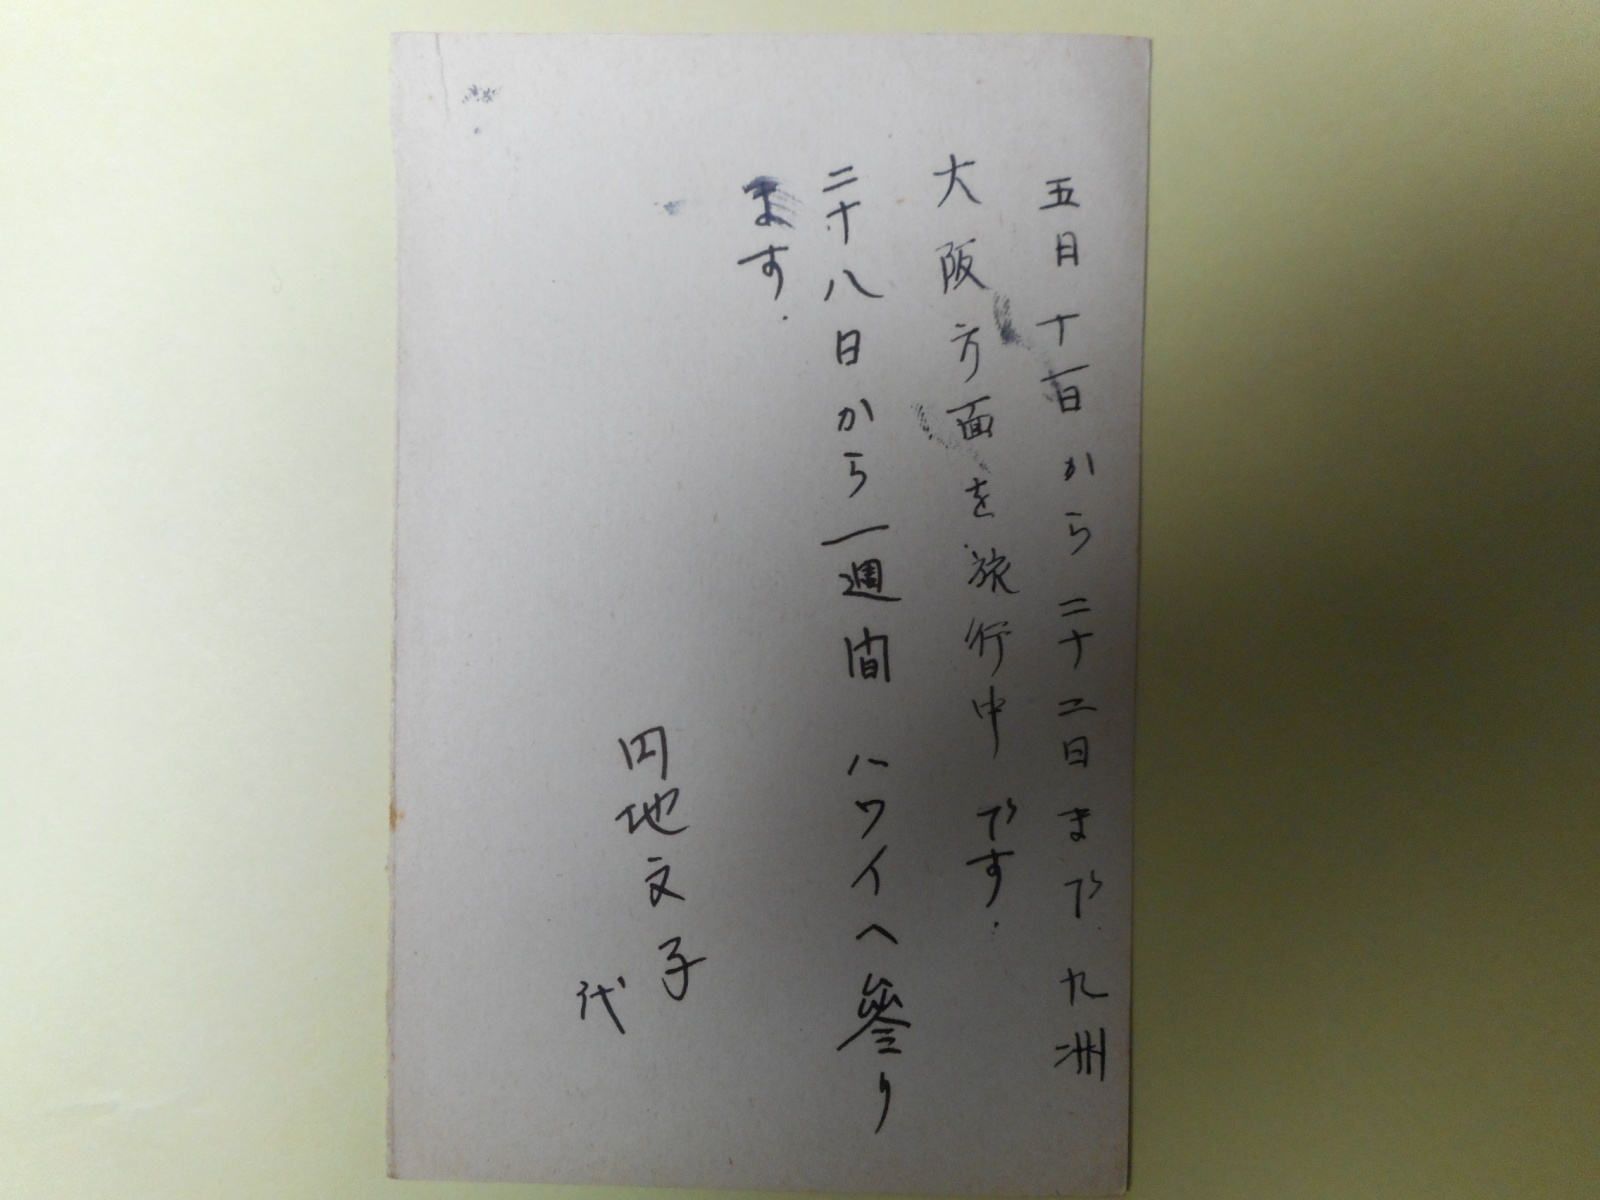 五月十一日から二十二日まで九洲
大阪方面を旅行中です.
二十八日から一週間 ハワイへ參り
ます.
円地文子
代